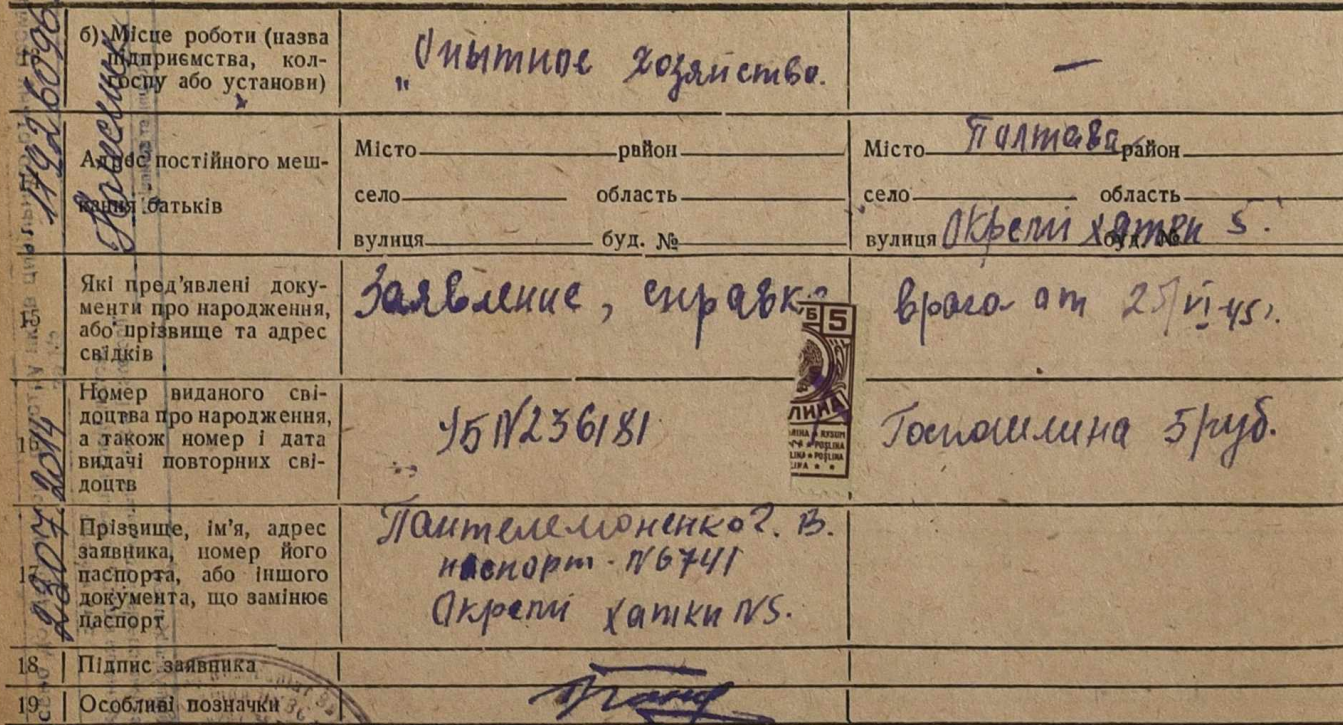 б) Місце роботи (назва
підприємства, кол-
госпу або установи)
„Опытное хозяйство.
—
Адрес постійного меш-
кання батьків
Місто район
село область
вулиця буд. №
Місто Полтава район
село область
вулиця Окремі хатки буд. № 5.
15 Які пред’явлені доку-
менти про народження,
або прізвище та адрес
свідків
Заявление, справка
врача от 25/VI-45г.
16 Номер виданого сві-
доцтва про народження,
а також номер і дата
видачі повторних сві-
доцтв
УБ N236181
Госпошлина 5 руб.
5
17 Прізвище, ім’я, адрес
заявника, номер його
паспорта, або іншого
документа, що замінює
паспорт
Пантелемоненко Г. В.
паспорт - N6741
Окремі хатки N5.
18 Підпис заявника
19 Особливі позначки